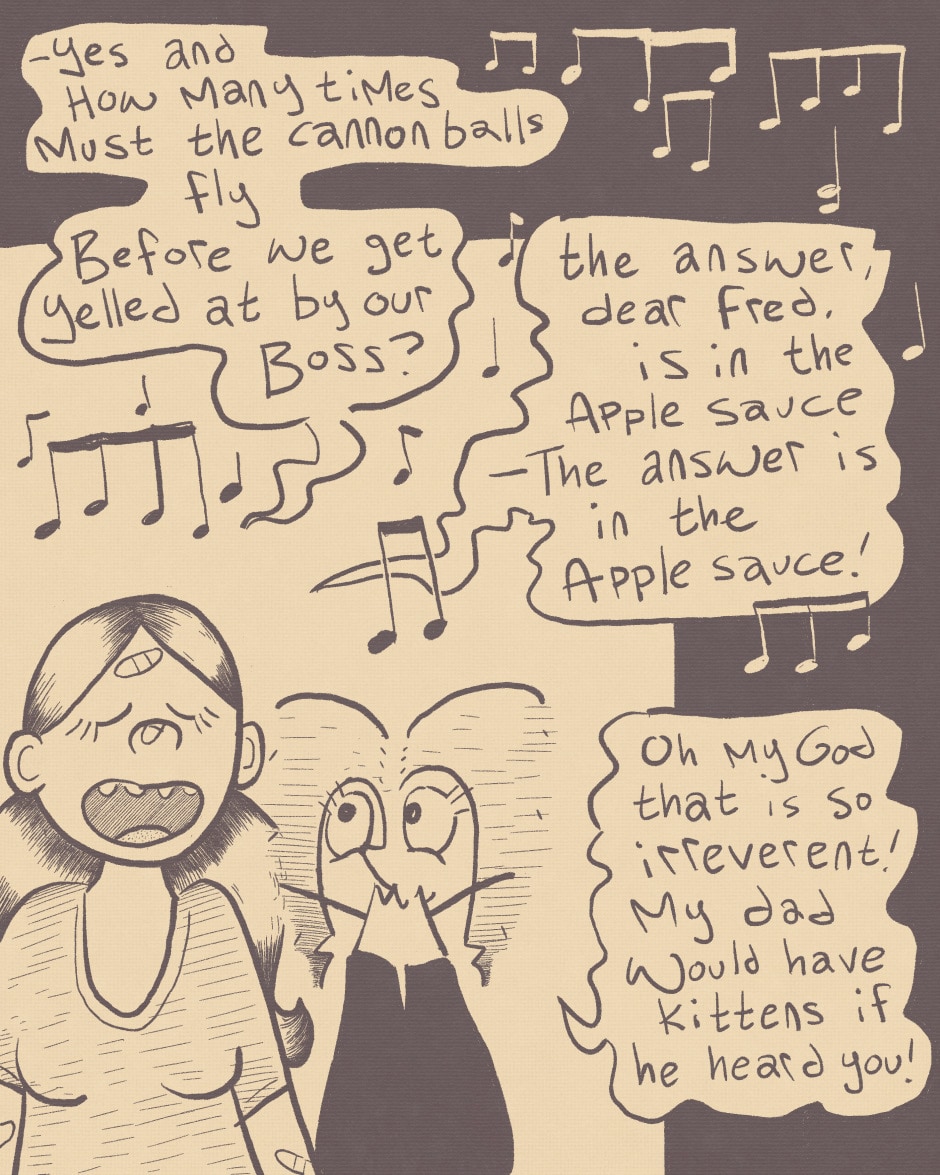 -Yes and
How Many times
Must the cannon balls
fly
Before we get
yelled at by our
Boss?
the answer,
dear Fred,
is in the
Apple sauce
-The answer is
in the
Apple sauce!
Oh My God
that is so
irreverent!
My dad
would have
kittens if
he heard you!